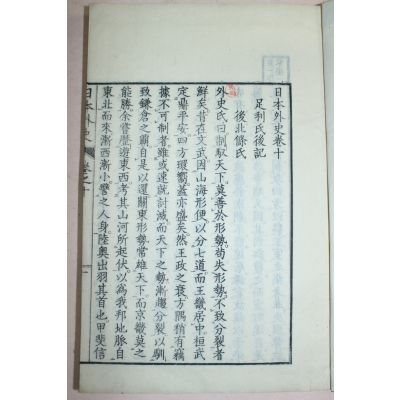 日本外史卷十
足利氏後記
後北條氏
外史氏曰馭天下莫善於形勢苟失形勢不致分裂者
鮮矣昔在文武因山海形便以分七道而王畿居中桓武
定鼎平安四方環嚮蓋亦盛矣然王政之衰方隅稍有竊
據不可制者雖或速就討滅而天下之勢漸趨分裂以馴
致鎌倉之霸自是以還關東形勢常雄天下而京畿莫之
能勝余嘗歷遊東西考其山河所起伏以為我邦地脈自
東北而來漸西漸小譬之人身陸奧出羽其首也甲斐信
日本外史 卷之十